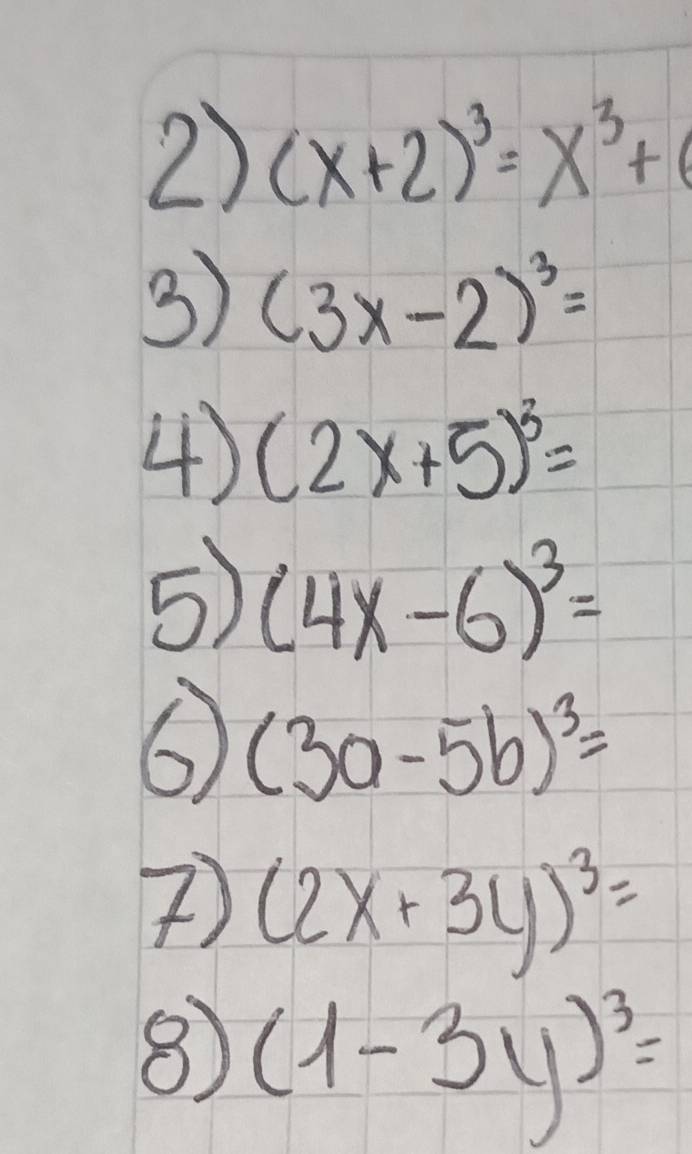 2) (x+2)³= x³+
3) (3x-2)³=
4) (2x+5)³=
5) (4x-6)³=
6) (3a-5b)³=
7) (2x+3y)³=
8) (1-3y)³=